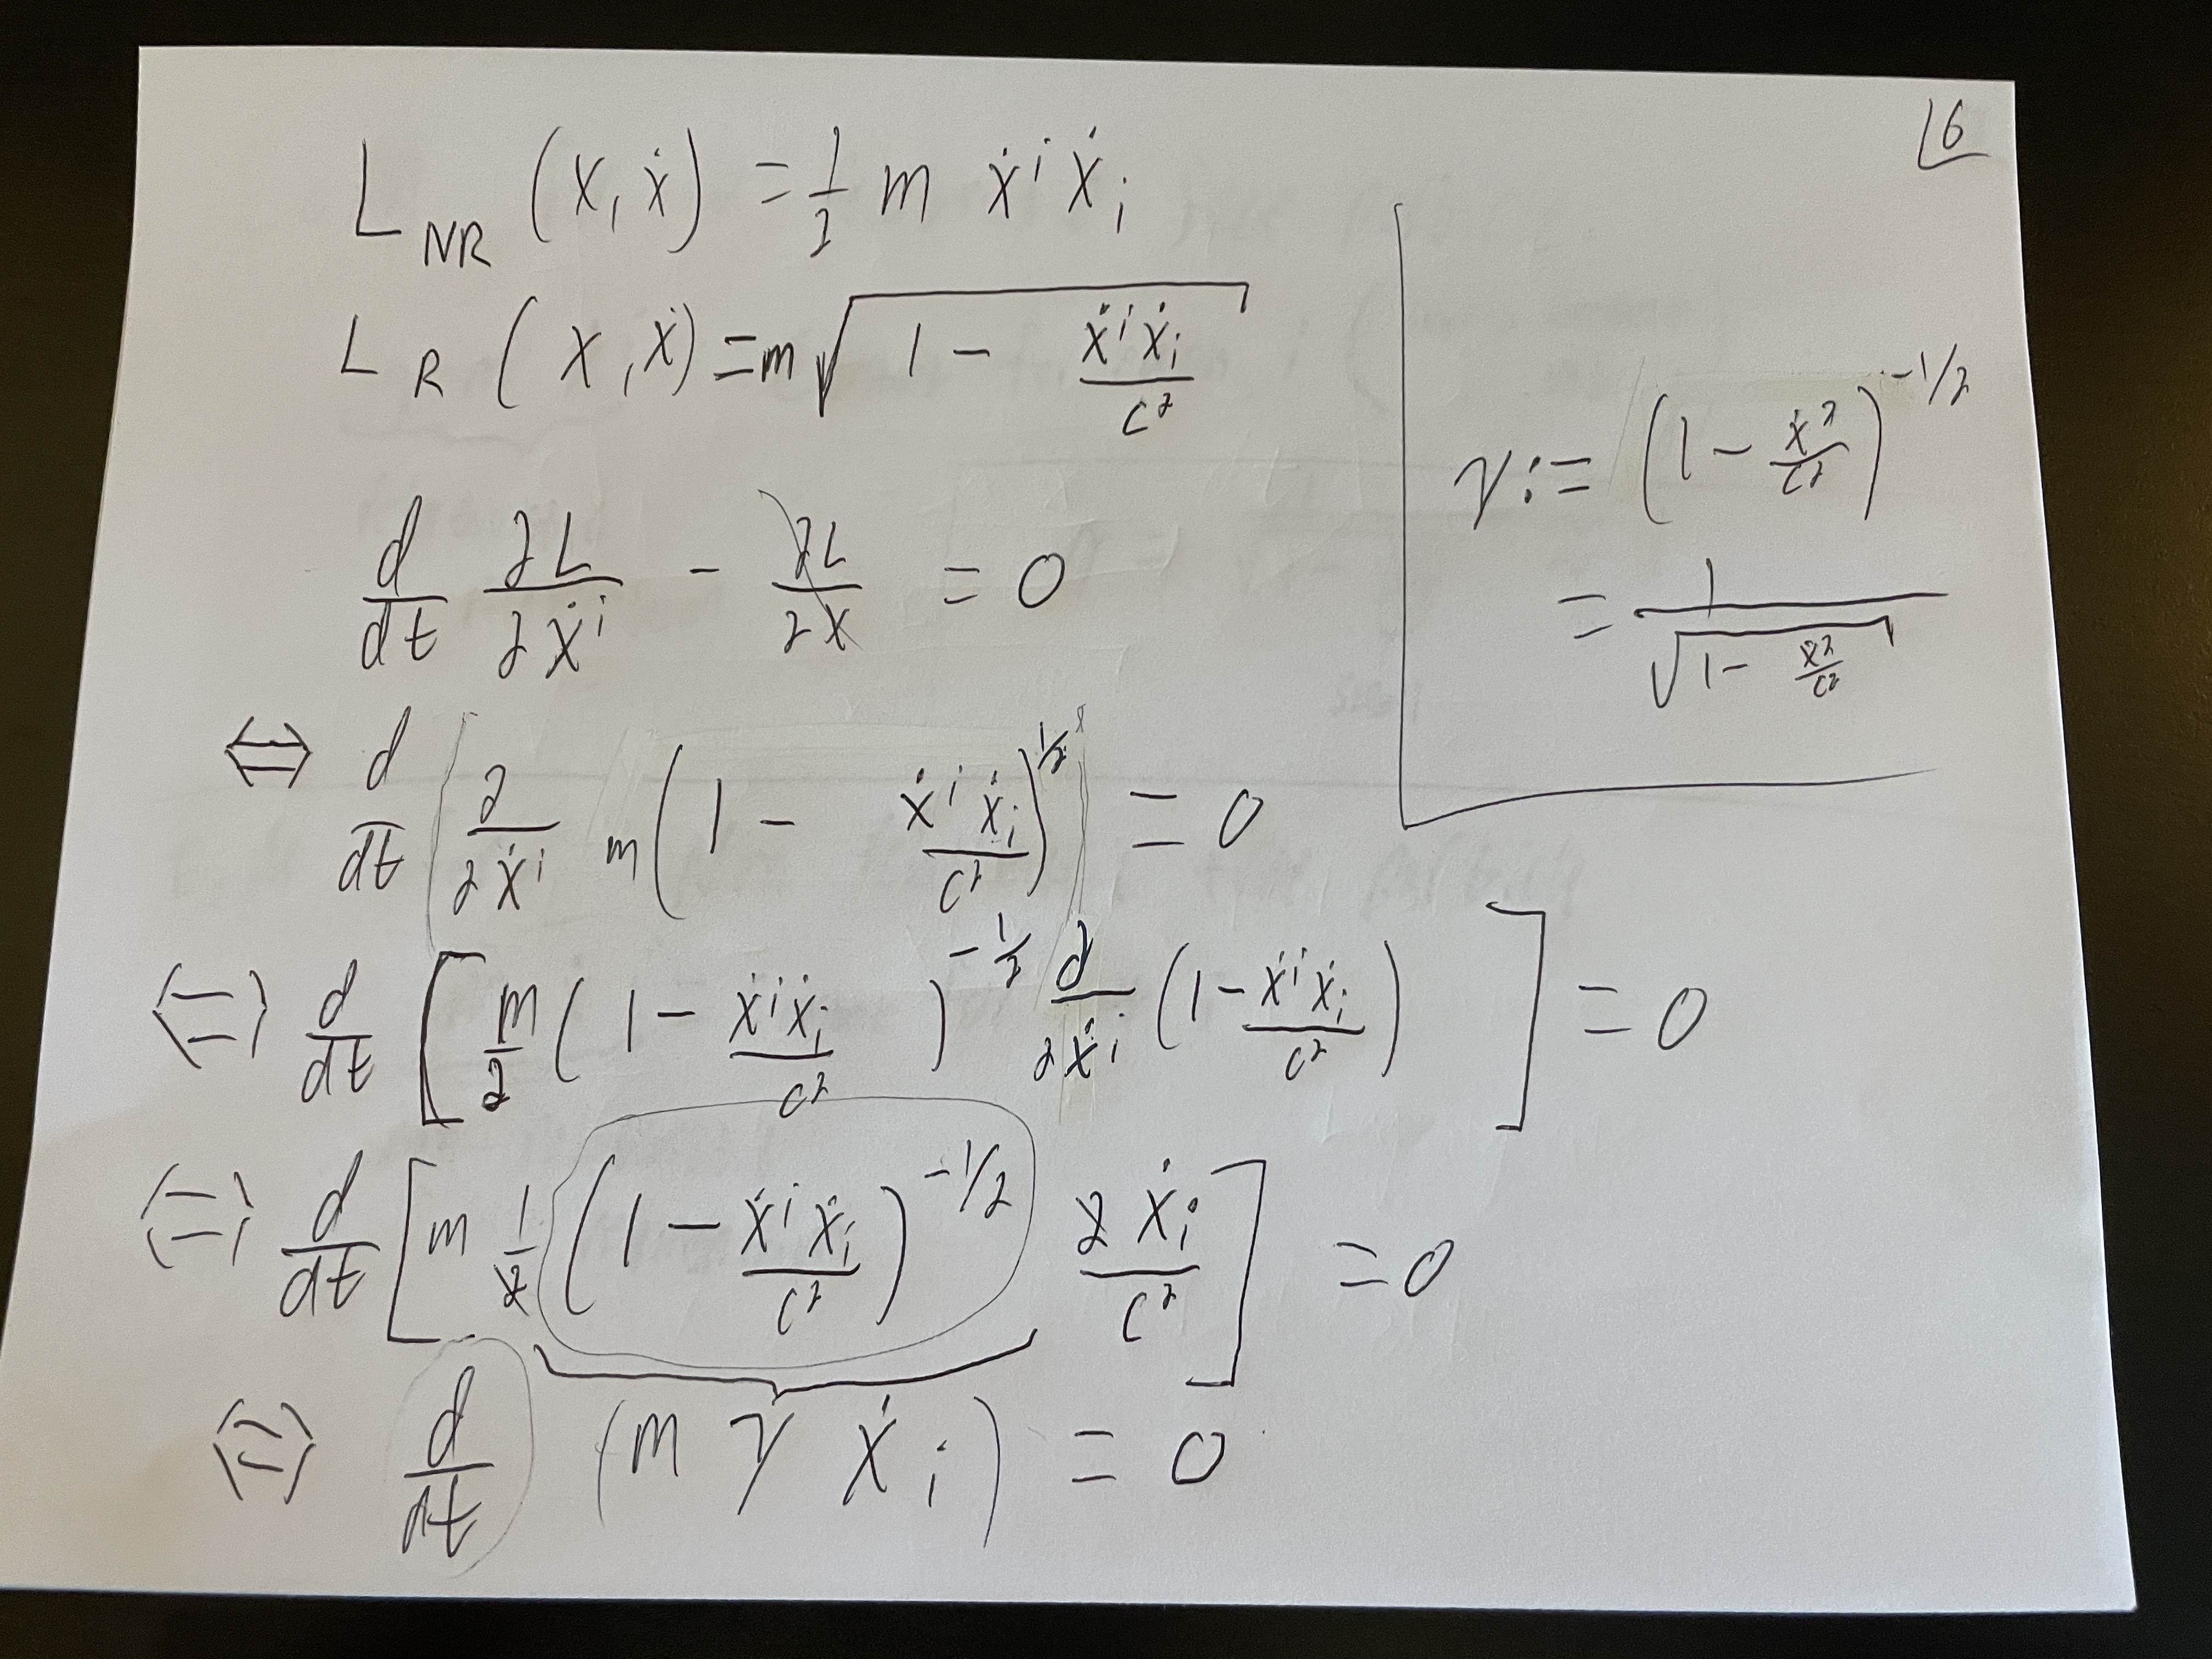 6
L_{NR} (x, ẋ) = \frac{1}{2} m ẋ^i ẋ_i
L_R (x, ẋ) = m \sqrt{1 - \frac{ẋ^i ẋ_i}{c^2}}
\frac{d}{dt} \frac{∂L}{∂ẋ^i} - \frac{∂L}{∂x} = 0
⇔ \frac{d}{dt} ( \frac{∂}{∂ẋ^i} m (1 - \frac{ẋ^i ẋ_i}{c^2})^{1/2} ) = 0
⇔ \frac{d}{dt} [ \frac{m}{2} (1 - \frac{ẋ^i ẋ_i}{c^2})^{-\frac{1}{2}} \frac{∂}{∂ẋ^i} (1 - \frac{ẋ^i ẋ_i}{c^2}) ] = 0
⇔ \frac{d}{dt} [ m \frac{1}{2} (1 - \frac{ẋ^i ẋ_i}{c^2})^{-1/2} \frac{2 ẋ_i}{c^2} ] = 0
⇔ \frac{d}{dt} (m γ ẋ_i) = 0
γ := (1 - \frac{ẋ^2}{c^2})^{-1/2}
= \frac{1}{\sqrt{1 - \frac{ẋ^2}{c^2}}}